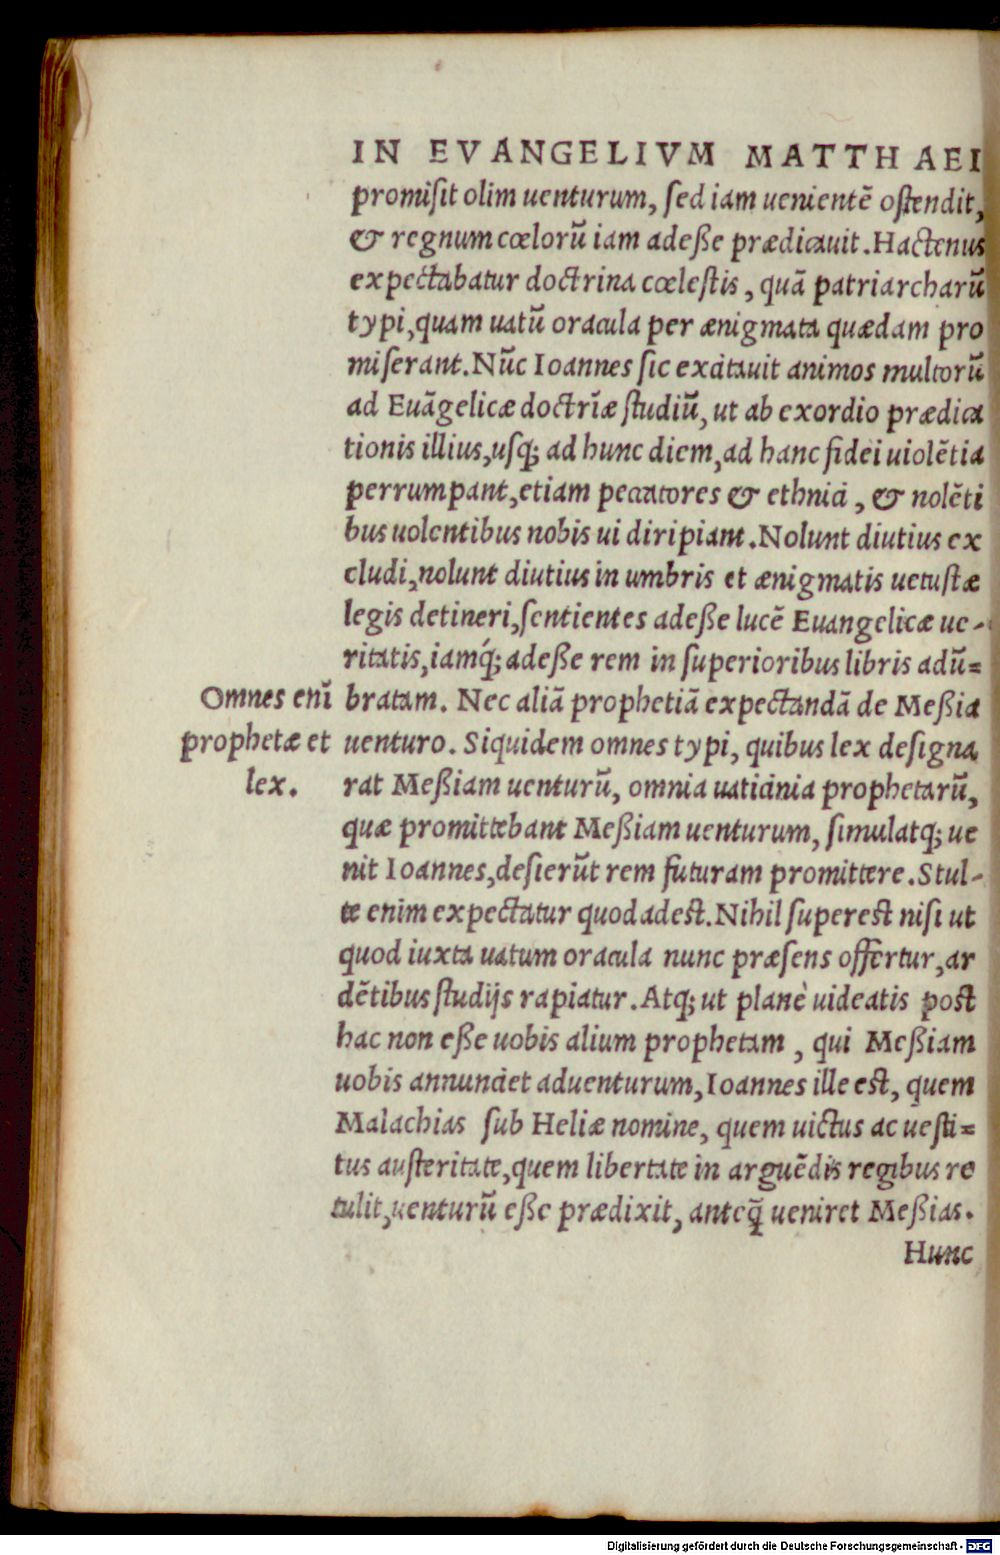 IN EVANGELIVM MATTHAEI
promiſit olim uenturum, ſed iam uenientē oſtendit,
& regnum cœlorū iam adeße prædicauit. Hactenus
expectabatur doctrina cœleſtis, quā patriarcharū
typi, quam uatū oracula per ænigmata quædam pro
miſerant. Nūc Ioannes ſic excitauit animos multorū
ad Euāgelicæ doctrīæ ſtudiū, ut ab exordio prædica
tionis illius, uſq; ad hunc diem, ad hanc fidei uiolētia
perrumpant, etiam peccatores & ethnici, & nolēti
bus uolentibus nobis ui diripiant. Nolunt diutius ex
cludi, nolunt diutius in umbris et ænigmatis uetuſtæ
legis detineri, ſentientes adeße lucē Euangelicæ ue-
ritatis, iamq́; adeße rem in ſuperioribus libris adū=
Omnes enī
prophetæ et
lex.
bratam. Nec aliā prophetiā expectandā de Meßia
uenturo. Siquidem omnes typi, quibus lex deſigna
rat Meßiam uenturū, omnia uaticinia prophetarū,
quæ promittebant Meßiam uenturum, ſimulatq; ue
nit Ioannes, deſierūt rem futuram promittere. Stul-
te enim expectatur quod adest. Nihil ſuperest niſi ut
quod iuxta uatum oracula nunc præſens offertur, ar
dētibus ſtudijs rapiatur. Atq; ut planè uideatis post
hac non eße uobis alium prophetam, qui Meßiam
uobis annunciet aduenturum, Ioannes ille est, quem
Malachias ſub Heliæ nomine, quem uictus ac ueſti=
tus auſteritate, quem libertate in arguēdis regibus re
tulit, uenturū eße prædixit, anteq̄ ueniret Meßias.
Hunc
Digitalisierung gefördert durch die Deutsche Forschungsgemeinschaft - DFG